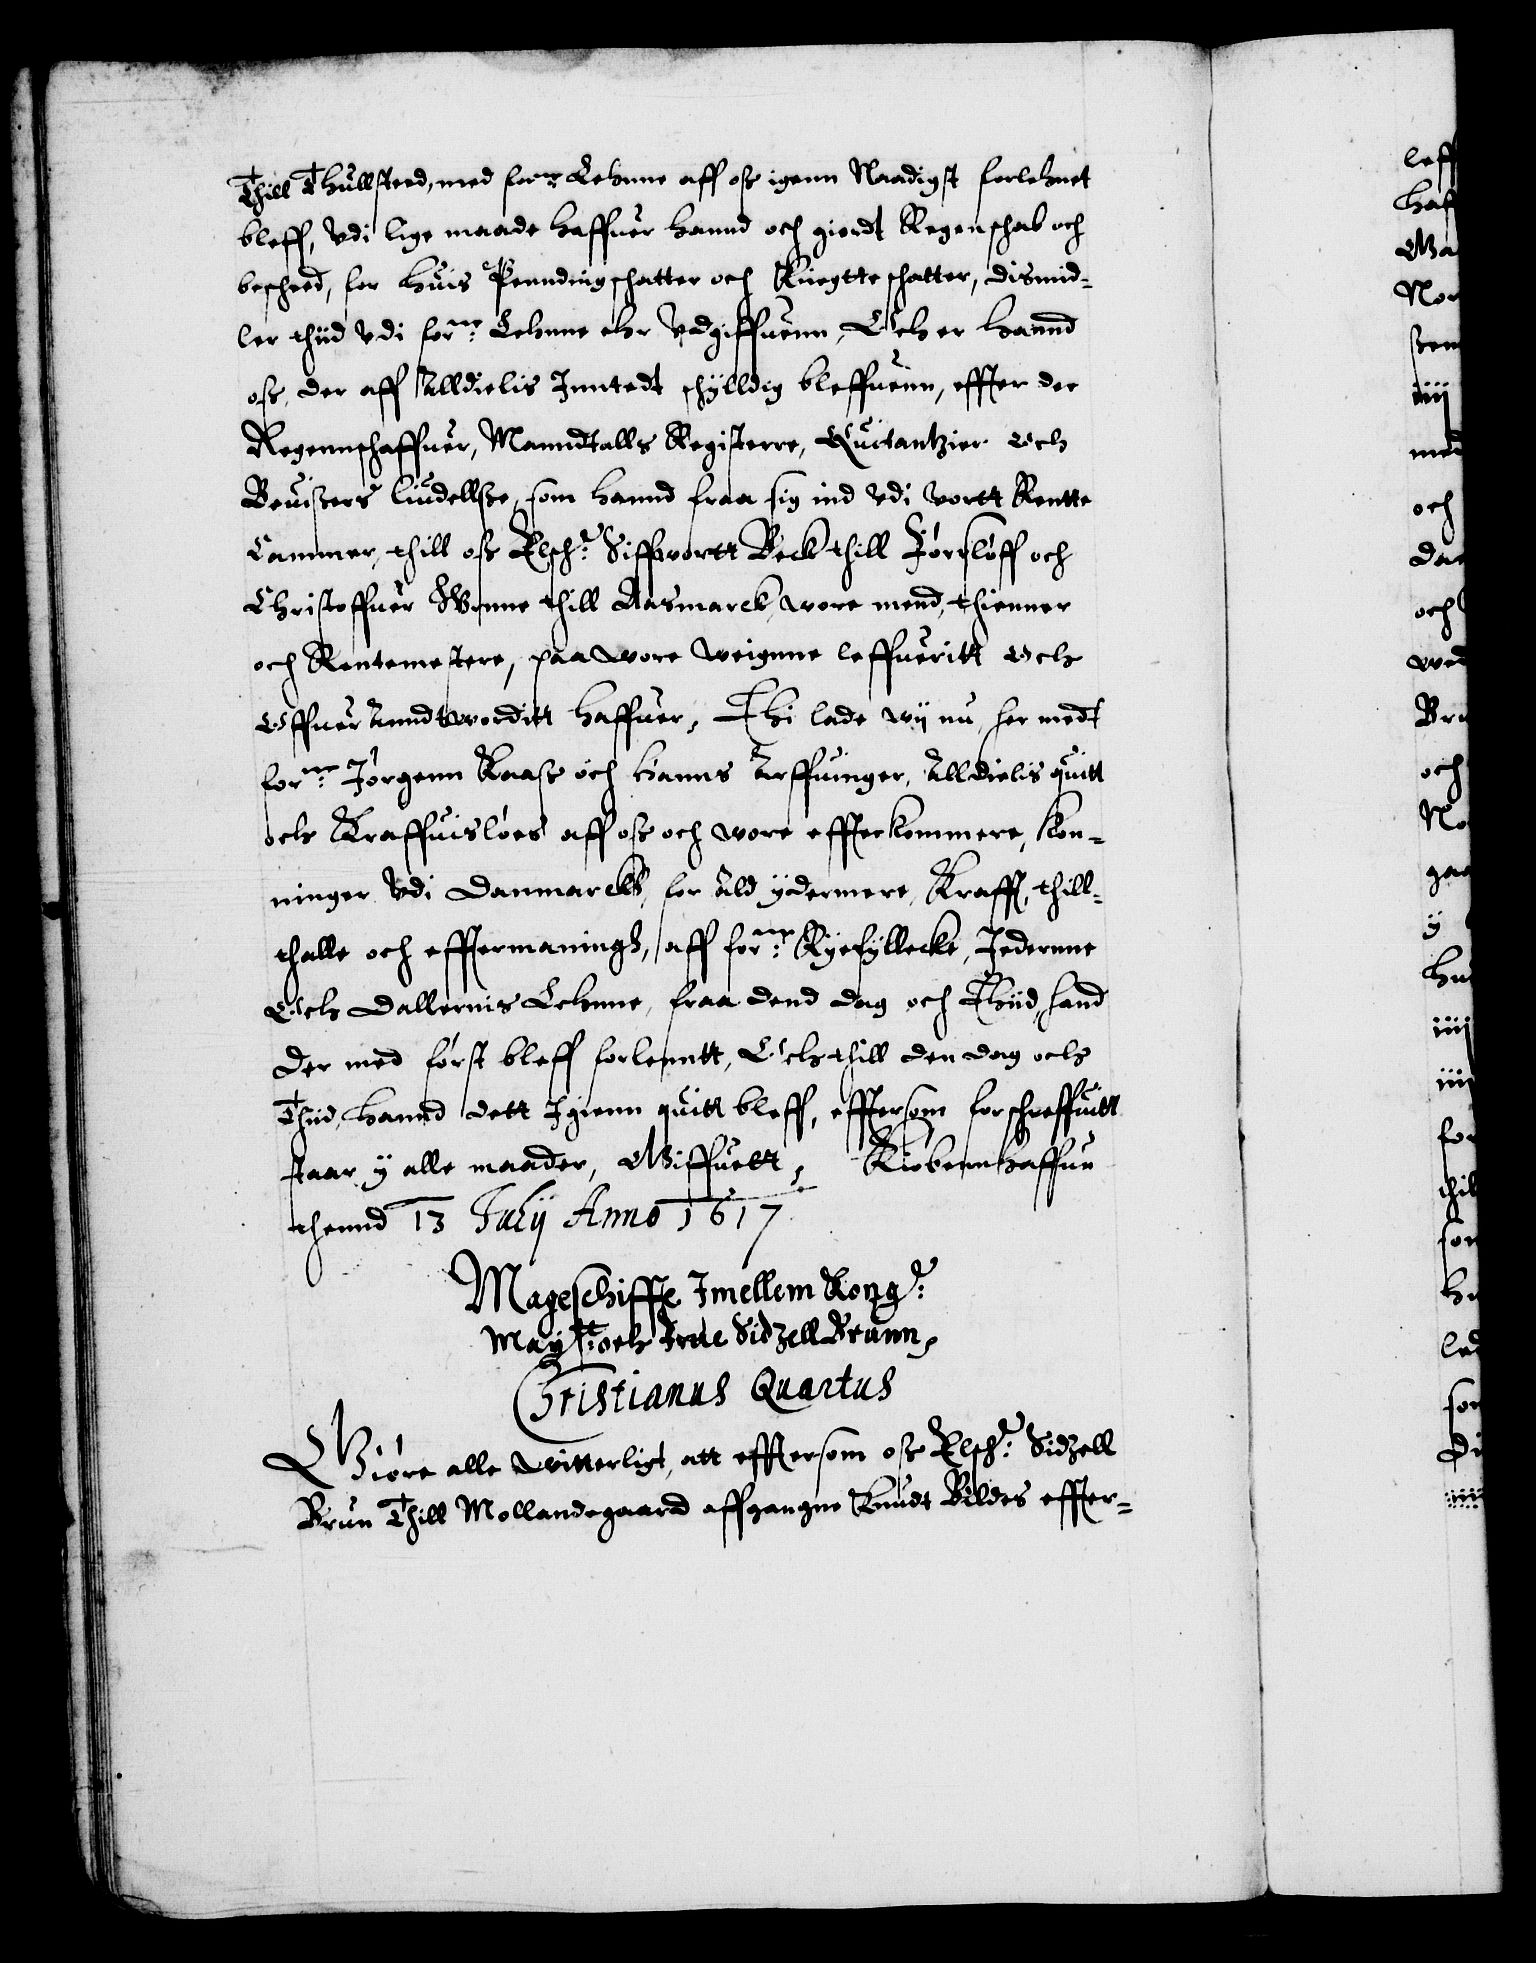 Thill Thullsteed, med for:ne Lehnne aff oss igenn Naadigst forlehnet
bleff, Vdi lige maade haffuer hannd och giordt Regenschab och
bescheed, for huis Penndingschatter och Kuegtte schatter, dismid-
ler thiid Vdi for:ne Lehnne ehr Vdgiffuenn, Och er hannd
oss, der aff Alldielis Inntedt schylldig bleffuenn, effter de
Regennschaffuer, Manndtalls Registerre, Quitantzier Och
Beuissers liudellsse, som hannd fraa sig ind Vdi vortt Rentte
Cammer, thill oss Elsch: Siffwortt Beck thill Førsløff och
Christoffuer Wrnne thill Aasmarck, wore mend, thienner
och Rentemestere, paa wore weignne leffueritt Och
Offuer Anndtworditt haffuer, Thi lade wij nu, her medt
for:ne Jørgenn Kaass och hanns Arffuinger, Alldielis quitt
och Kraffuisløes aff oss och wore effterkommere, Kon-
ninger Vdi Danmarck, for Ald ydermere, Kraff, thill-
thalle och efftermaningh, aff for:ne Ryefyllecke, Jedernne
Och Dallernis Lehnne, fraa dend dag och Thiid, hand
der med først bleff forlenntt, Och thill den dag och
Thiid, hannd dett Igienn quitt bleff, efftersom forschreffuitt
staar y alle maader, Giffuett, Kiøbennhaffun
thennd 13 Julij Anno 1617
Mageschiffte Imellem Kong:
May:tt och Frue Sidzell Brunn,
Christianus Quartus
Giøre alle witterligt, att efftersom oss Elsch: Sidzell
Brun Thill Mollandegaard affgangne Knudt Bildes effter-